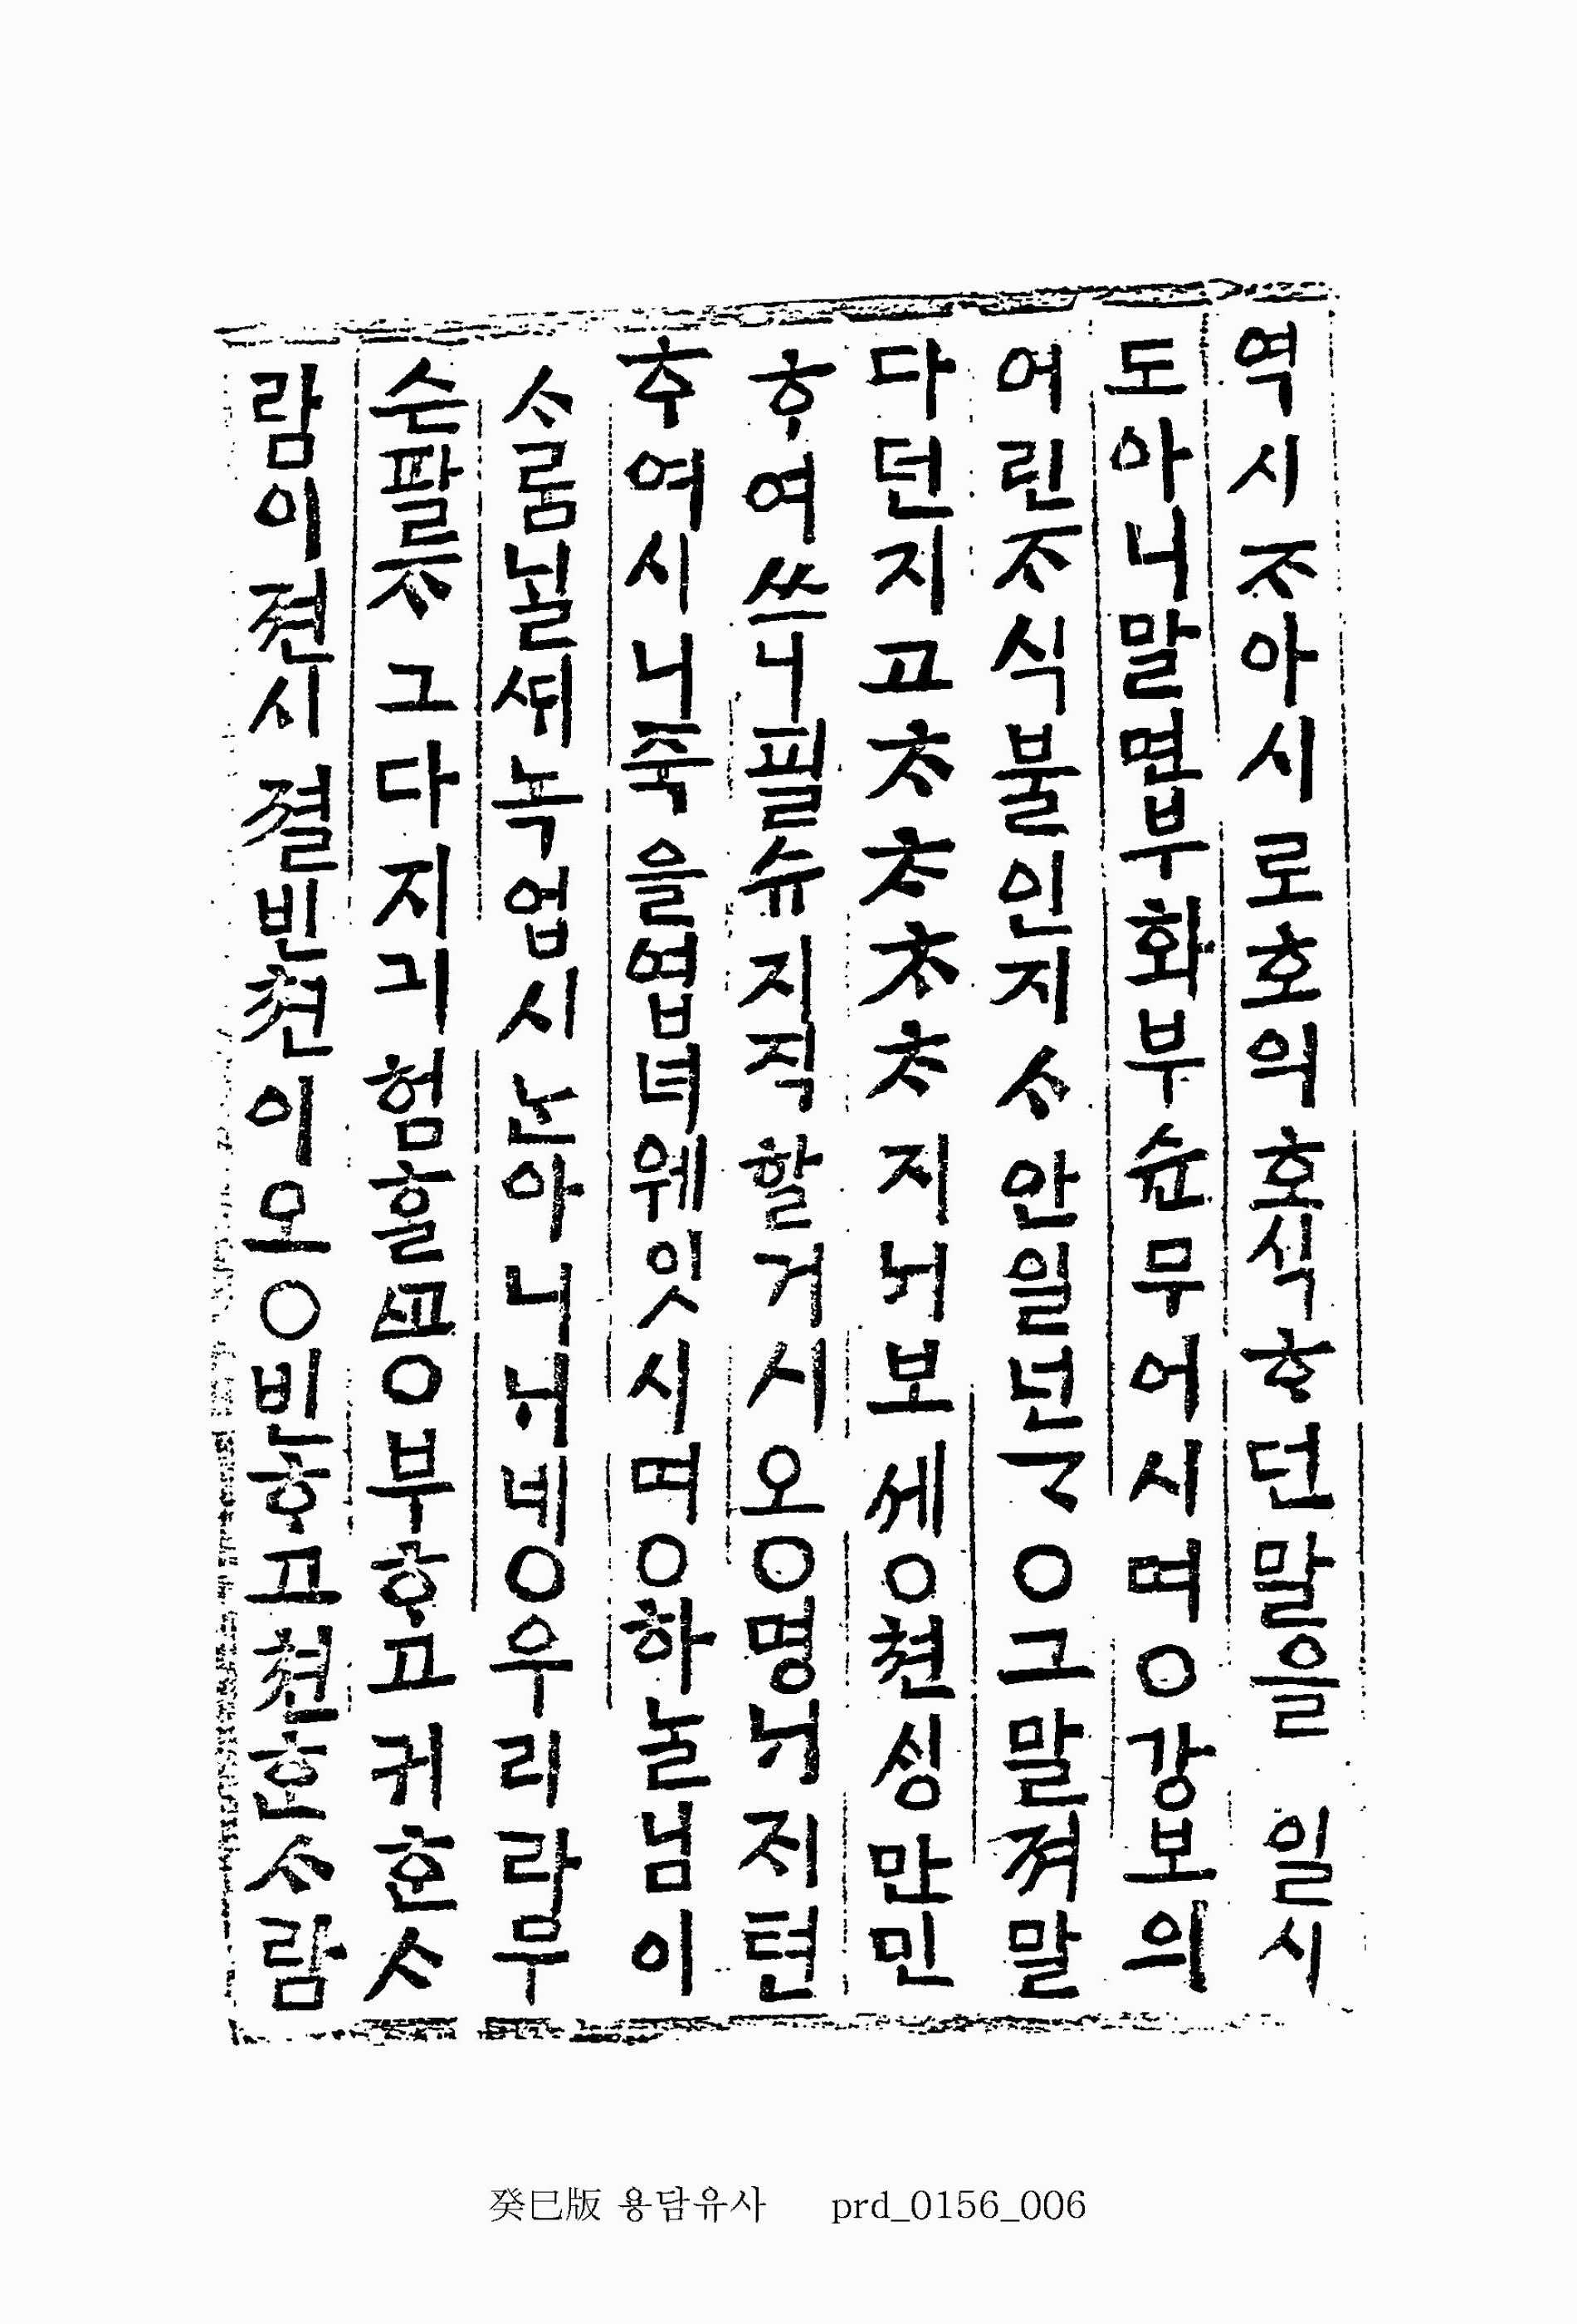 역시ᄌᆞ아시로호의호식ᄒᆞ던말을 일시
도아니말면부화부슌무어시며○강보의
어린ᄌᆞ식불인지ᄉᆞ안일넌ᄀᆞ○그말져말
다던지고ᄎᆞᄎᆞᄎᆞᄎᆞ지ᄂᆡ보세○쳔ᄉᆡᆼ만민
ᄒᆞ여쓰니필슈지직할거시오○명ᄂᆡ지텬
ᄒᆞ여시니죽을염녀웨잇시며○하ᄂᆞᆯ님이
ᄉᆞ룸ᄂᆡᆯ쎠녹업시ᄂᆞᆫ아니ᄂᆡ네○우리라무
슨팔ᄌᆞ그다지긔험ᄒᆞᆯ고○부ᄒᆞ고귀ᄒᆞᆫᄉᆞ
람이젼시졀빈쳔이오○빈ᄒᆞ고쳔ᄒᆞᆫᄉᆞ람
癸巳版 용담유사 prd_0156_006